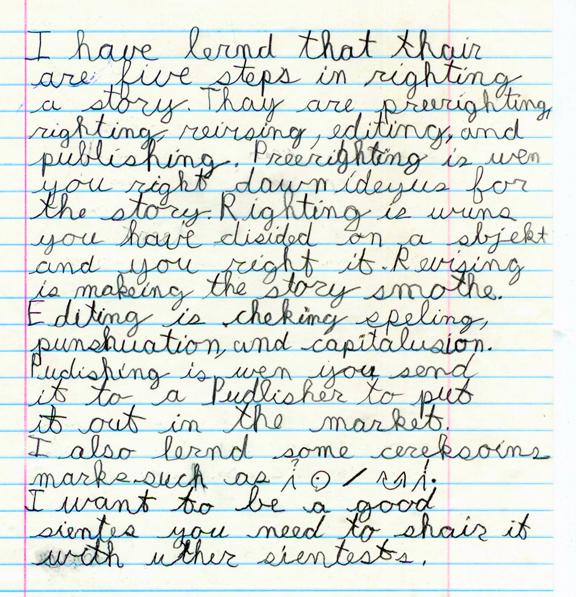 I have lernd that thair
are five steps in righting
a story. Thay are preerighting,
righting reirsing, editing, and
publishing. Preerighting is wen
you right dawn ideyus for
the story. Righting is wuns
you have disided on a sbjekt
and you right it. Revising
is makeing the story smothe.
Editing is cheking speling,
punshuation, and capitalusion.
Pudishing is wen you send
it to a Pudlisher to put
it out in the market.
I also lernd some cereksoins
marks such as
I want to be a good
sientes you need to shair it
with uther sientests.